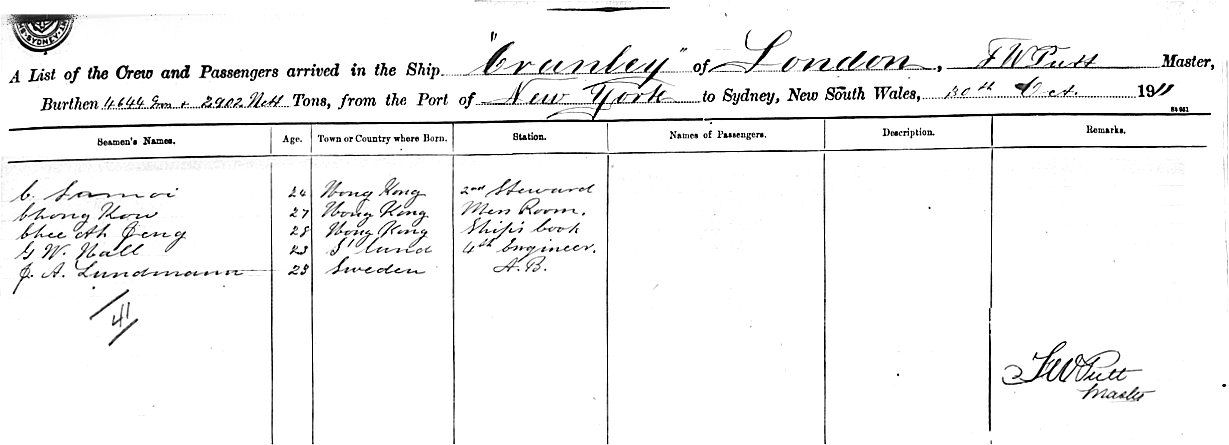 SYDNEY
A List of the Crew and Passengers arrived in the Ship "Cranley" of London, F W Putt Master,
Burthen 4644 & 2902 Nett Tons, from the Port of New York to Sydney, New South Wales, 30th Oct. 1911
Seamen's Names. Age. Town or Country where Born. Station. Names of Passengers. Description. Remarks.
C. Samoi 24 Hong Kong 2nd Steward
Chong Kow 27 Hong Kong Mess Room.
Chee Ah Jeng 28 Hong Kong Ship's Cook
G W. Hall 23 S'lund 4th Engineer.
J. A. Lundmann 23 Sweden A.B.
41
F W Putt
Master